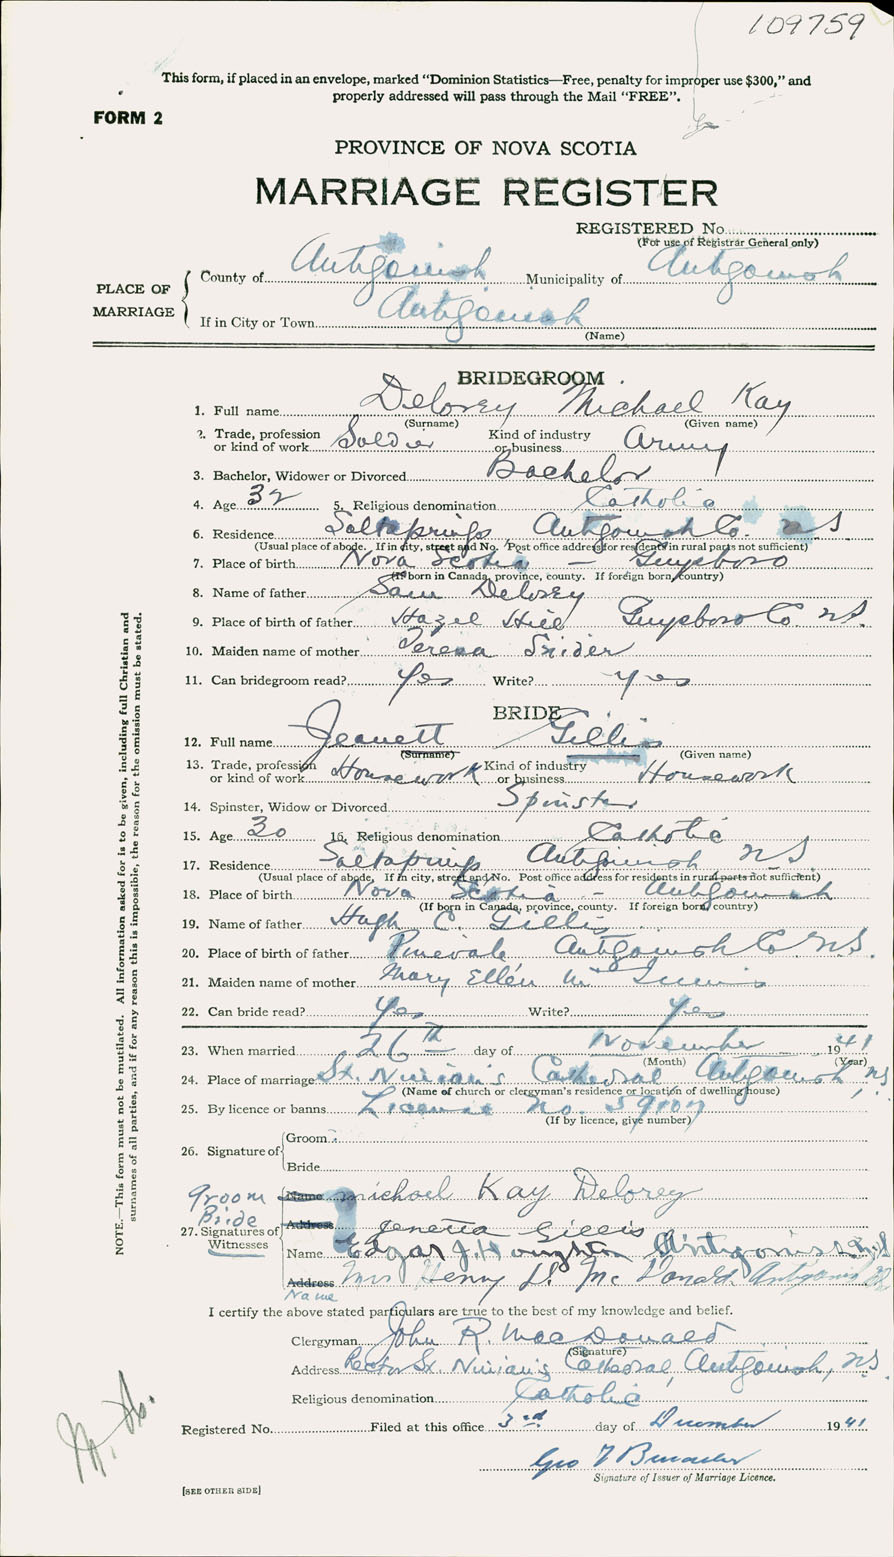 109759
This form, if placed in an envelope, marked “Dominion Statistics—Free, penalty for improper use $300,” and
properly addressed will pass through the Mail “FREE”.
FORM 2
PROVINCE OF NOVA SCOTIA
MARRIAGE REGISTER
REGISTERED No.
(For use of Registrar General only)
PLACE OF MARRIAGE
County of Antigonish Municipality of Antigonish
If in City or Town Antigonish
(Name)
BRIDEGROOM
1. Full name Delorey Michael Kay
(Surname) (Given name)
2. Trade, profession or kind of work Soldier Kind of industry or business Army
3. Bachelor, Widower or Divorced Bachelor
4. Age 32 5. Religious denomination Catholic
6. Residence Saltsprings Antigonish Co. NS
(Usual place of abode. If in city, street and No. Post office address for residents in rural parts not sufficient)
7. Place of birth Nova Scotia - Guysboro
(If born in Canada, province, county. If foreign born, country)
8. Name of father Sam Delorey
9. Place of birth of father Hazel Hill Guysboro Co N.S.
10. Maiden name of mother Teresa Snider
11. Can bridegroom read? Yes Write? Yes
BRIDE
12. Full name Jeanett Gillis
(Surname) (Given name)
13. Trade, profession or kind of work Housework Kind of industry or business Housework
14. Spinster, Widow or Divorced Spinster
15. Age 30 16. Religious denomination Catholic
17. Residence Saltsprings Antigonish NS
(Usual place of abode. If in city, street and No. Post office address for residents in rural parts not sufficient)
18. Place of birth Nova Scotia - Antigonish
(If born in Canada, province, county. If foreign born, country)
19. Name of father Hugh C. Gillis
20. Place of birth of father Pinevale Antigonish Co N.S.
21. Maiden name of mother Mary Ellen Mc
22. Can bride read? Yes Write? Yes
23. When married 26th day of November 1941
(Month) (Year)
24. Place of marriage St. Ninian's Cathedral Antigonish, N.S.
(Name of church or clergyman's residence or location of dwelling house)
25. By licence or banns License No.
(If by licence, give number)
26. Signature of
Groom
Bride
Groom Name Michael Kay Delorey
Bride Address Jenetta Gillis
27. Signatures of Witnesses
Name Edgar J. Houghton Antigonish N.S.
Address Mrs Henry D. McDonald. Antigonish
Name
I certify the above stated particulars are true to the best of my knowledge and belief.
Clergyman John R. MacDonald
(Signature)
Address Rector St. Ninian's Cathedral, Antigonish, N.S.
Religious denomination Catholic
Registered No. Filed at this office 3rd day of December 1941
Geo
Signature of Issuer of Marriage Licence.
[SEE OTHER SIDE]
NOTE.—This form must not be mutilated. All information asked for is to be given, including full Christian and
surnames of all parties, and if for any reason this is impossible, the reason for the omission must be stated.